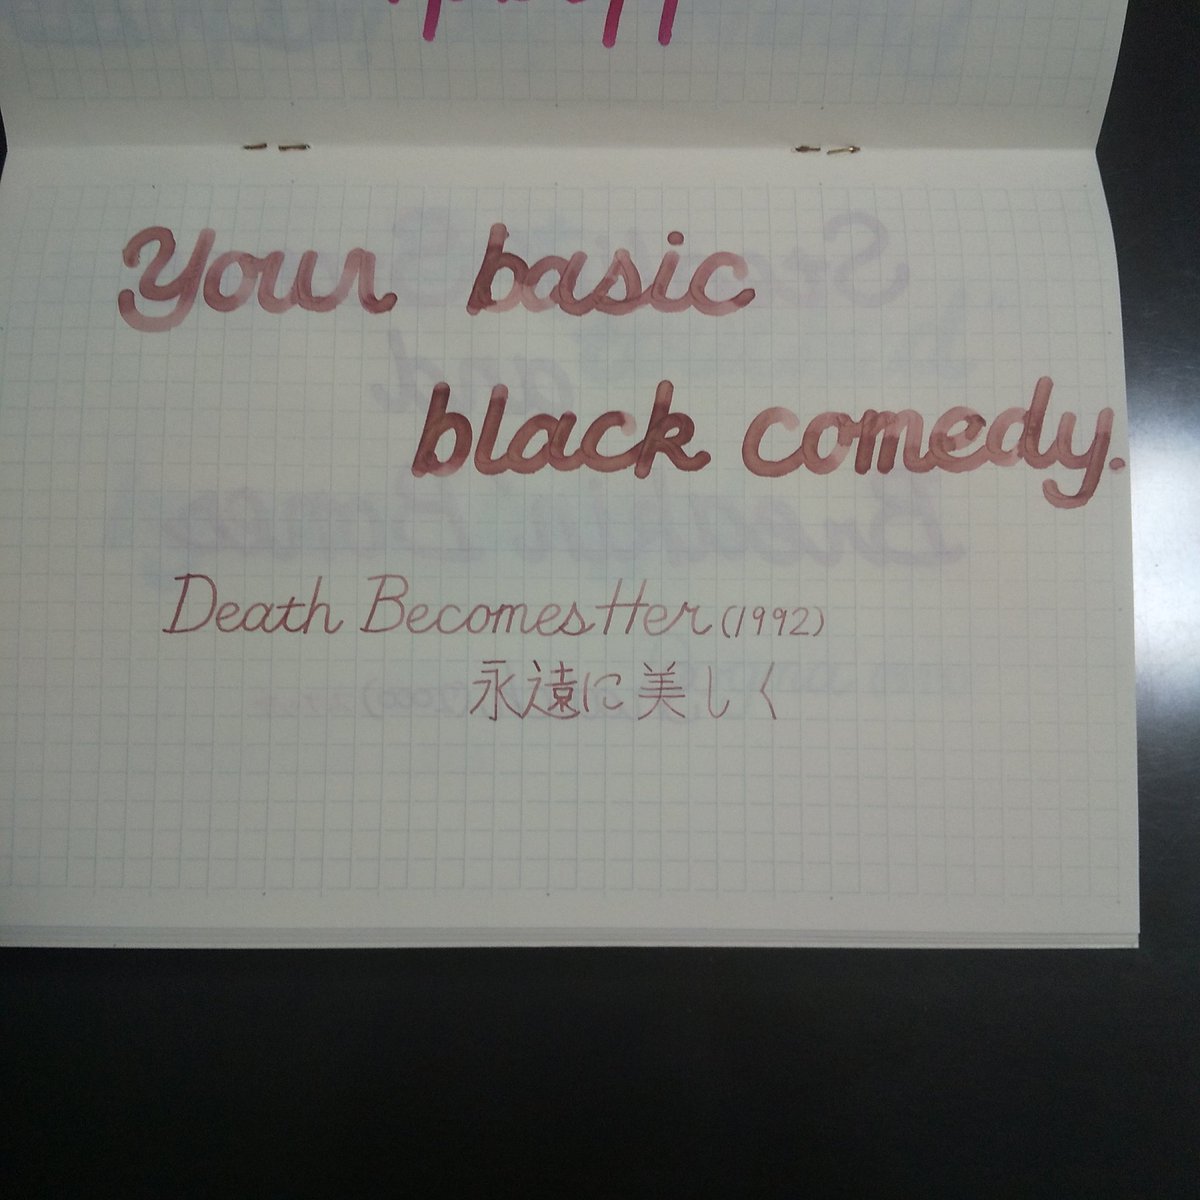 Your basic
black comedy.
Death Becomes Her (1992)
永遠に美しく